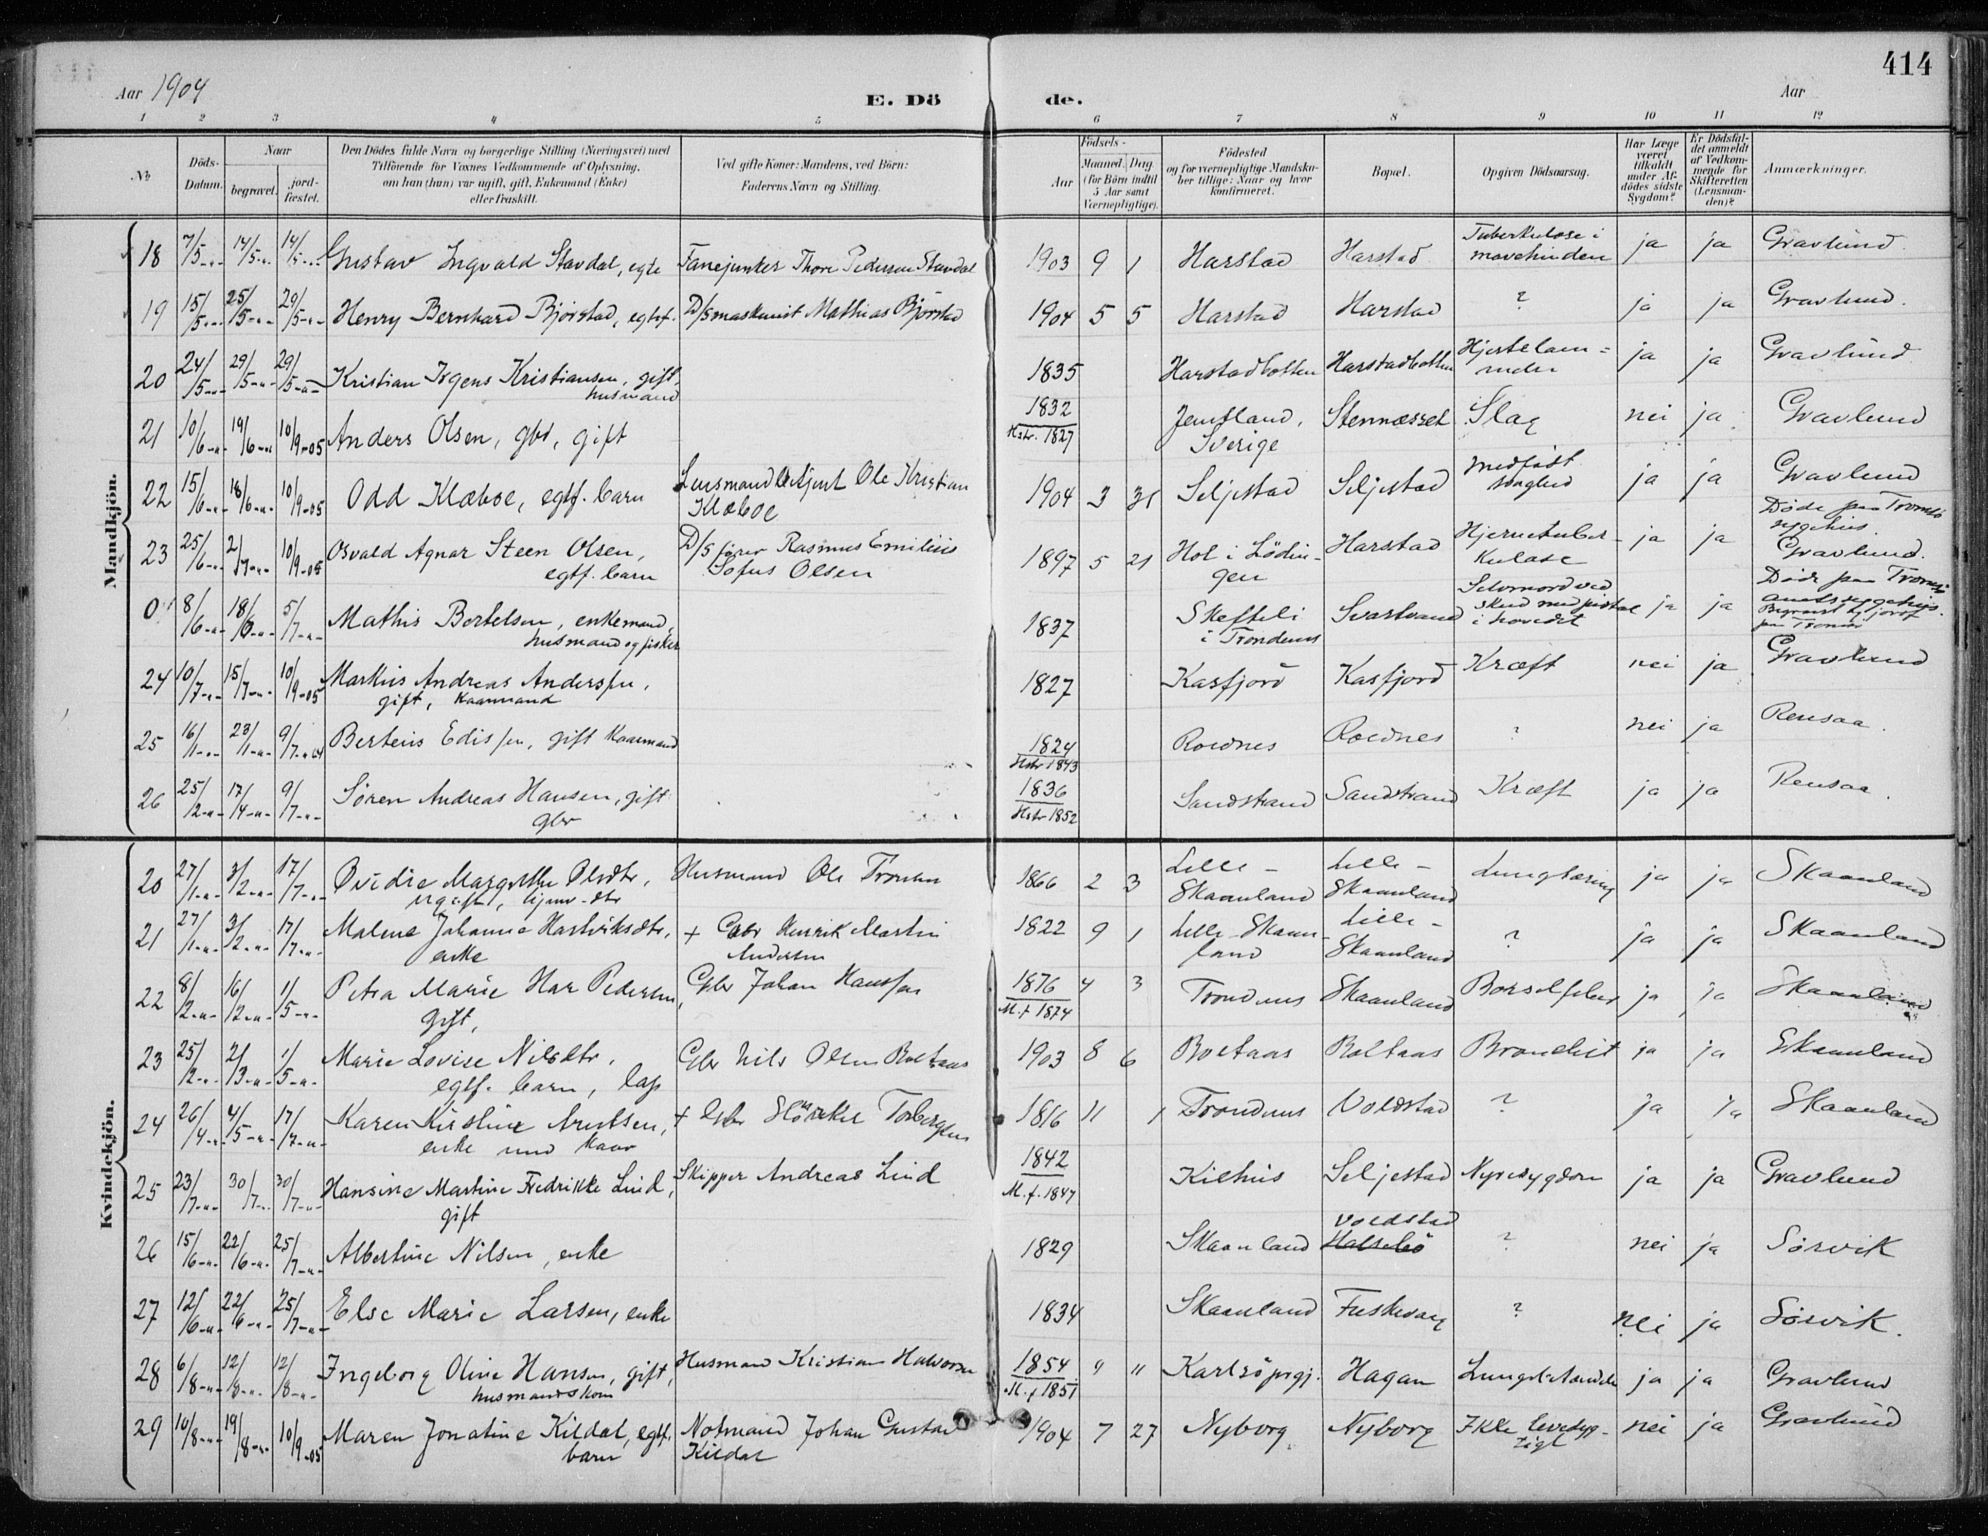 414
Aar 1904
E. Dö de.
Aar
1 2 3 4 5 6 7 8 9 10 11 12
No
Döds-Datum.
Naar
begravet.
jord-fæstet.
Den Dödes fulde Navn og borgerlige Stilling (Næringsvei) med
Tilföiende for Voxnes Vedkommende af Oplysning,
om han (hun) var ugift, gift, Enkemand (Enke)
eller fraskilt.
Ved gifte Koner: Mandens, ved Börn:
Faderens Navn og Stilling.
Födsels-
Aar
Maaned. Dag.
(for Börn indtil 5 Aar samt Værnepligtige).
Födested
og for værnepligtige Mandskaber tillige: Naar og hvor konfirmeret.
Bopæl.
Opgiven Dödsaarsag.
Har Læge været tilkaldt under Afdödes sidste Sygdom?
Er Dödsfaldet anmeldt af Vedkommende for Skifteretten (Lensmanden)?
Anmærkninger.
Mandkjön.
18 7/5 14/5 14/5 Gustav Ingvald Stavdal, egte Fanejunker Thore Pedersen Stavdal 1903 9 1 Harstad Harstad Tuberkulose i mavehinden ja ja Gravlund
19 15/5 25/5 29/5 Henry Bernhard Bjørstad, egtef. D/S maskinist Mathias Bjørstad 1904 5 5 Harstad Harstad ? ja ja Gravlund.
20 24/5 29/5 29/5 Kristian Irgens Kristiansen, gift, husmand 1835 Harstadbotten Harstadbotten Hjertelam= ja ja Gravlund
21 10/6 19/6 10/9-05 Anders Olsen, gbr, gift 1832 Kstr. 1827 Jemtland, Sverige Stennæsset Slag nei ja Gravlund
22 15/6 18/6 10/9-05 Odd Klæboe, egtf. barn Lensmand Ole Kristian Klæboe 1904 3 31 Seljestad Seljestad medfødt svaghed ja ja Gravlund
23 25/6 2/7 10/9-05 Osvald Agnar Steen Olsen, egtf. barn D/S fører Rasmus Emilius Sofus Olsen 1897 5 21 Hol i Lödingen Harstad Hjernetuberkulose ja ja Døde paa Tromsö sygehus Gravlund.
0 8/6 18/6 5/7 Mathis Bertelsen, enkemand, husmand og fisker 1837 i Trondenes Svartvand Selvmord ved skud med pistol i hovedet ja ja Døde paa Tromsö amtssygehus. Begravet og jordf. paa Tromsö
24 10/7 15/7 10/9-05 Mathis Andreas Andersen, gift, kaarmand 1827 Kasfjord Kasfjord Kræft nei ja Gravlund
25 16/1 23/1 9/7 Berteus Edissen, gift kaarmand 1824 Kstr 1843 Roednes Roednes ? nei ja Rensaa.
26 25/2 17/4 9/7 Sören Andreas Hansen, gift gbr 1836 Kstr 1852 Sandstrand Sandstrand Kræft ja ja Rensaa.
Kvindekjön.
20 27/1 3/2 17/7 Margrethe Olsdtr, ugift, Husmand Ole Tronsen 1866 2 3 Lille-Skaanland Lille-Skaanland Lungtæring ja ja Skaanland
21 27/1 3/2 17/7 Malene Johanne Hartviksdtr, enke + Gbr Henrik Martin Andersen 1822 9 1 Lille Skaanland Lille-Skaanland ? ja ja Skaanland
22 8/2 16/2 1/5 Petra Marie Har Pedersen, gift, Gbr Johan Hanssen 1876 M.f 1874 4 3 Trondenes Skaanland Barselfeber ja ja Skaanland
23 25/2 2/3 1/5 Marie Lovise Nilsdtr, egtf. barn, lap Gbr Nils Olsen Boltaas 1903 8 6 Boltaas Boltaas Bronchit ja ja Skaanland
24 26/4 4/5 17/7 Karen Kirstine Arntsen, enke med kaar + Gbr Torbergsen 1816 11 1 Trondenes Voldstad ? ja ja Skaanland
25 23/7 30/7 30/7 Hansine Martine Fredrikke Lind, gift Skipper Andreas Lind 1842 M.f. 1847 Kilhus Seljestad Nyresygdom ja ja Gravlund
26 15/6 22/6 25/7 Albertine Nilsen, enke 1829 Skaanland Voldstad ? nei ja Sørvik
27 12/6 22/6 25/7 Else Marie Larsen, enke 1834 Skaanland Fuskevaag ? nei ja Sørvik.
28 6/8 12/8 12/8 Ingeborg Oline Hansen, gift, husmandskone Husmand Kristian Halvorsen 1854 M.f 1851 " " Karlsöprgj. Hagan ja ja Gravlund
29 10/8 19/8 10/9-05 Maren Jonatine Kildal, egtf. barn Notmand Johan Gustav Kildal 1904 7 27 Nyborg Nyborg Ikke levedygtigt nei ja Gravlund